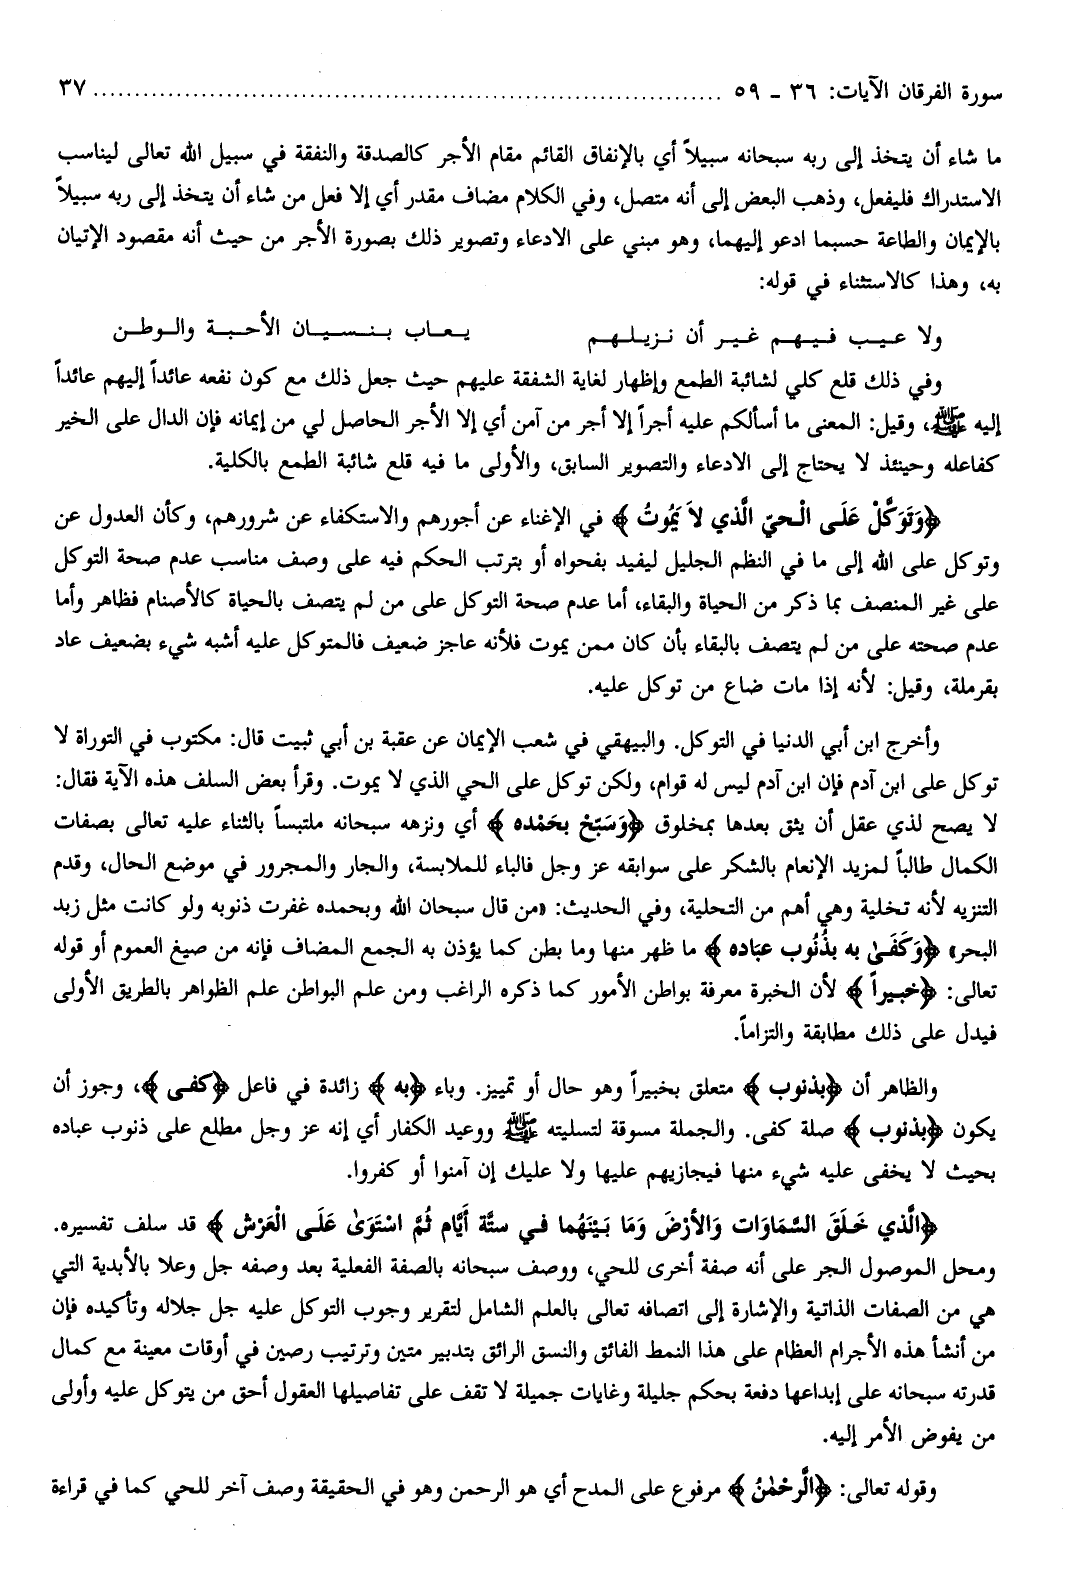 سورة الفرقان الآيات: ٣٦ ـ ٥٩ ........................................................................ ٣٧
ما شاء أن يتخذ إلى ربه سبحانه سبيلاً أي بالإنفاق القائم مقام الأجر كالصدقة والنفقة في سبيل الله تعالى ليناسب
الاستدراك فليفعل، وذهب البعض إلى أنه متصل، وفي الكلام مضاف مقدر أي إلا فعل من شاء أن يتخذ إلى ربه سبيلاً
بالإيمان والطاعة حسبما ادعو إليهما، وهو مبني على الادعاء وتصوير ذلك بصورة الأجر من حيث أنه مقصود الإتيان
به، وهذا كالاستثناء في قوله:
ولا عـيـب فـيـهـم غـيـر أن نـزيـلـهـم يـعـاب بـنـسـيـان الأحـبـة والـوطـن
وفي ذلك قلع كلي لشائبة الطمع وإظهار لغاية الشفقة عليهم حيث جعل ذلك مع كون نفعه عائداً إليهم عائداً
إليه ﷺ، وقيل: المعنى ما أسألكم عليه أجراً إلا أجر من آمن أي إلا الأجر الحاصل لي من إيمانه فإن الدال على الخير
كفاعله وحينئذ لا يحتاج إلى الادعاء والتصوير السابق، والأولى ما فيه قلع شائبة الطمع بالكلية.
﴿وَتَوَكَّلْ عَلَى الْحيّ الَّذي لاَ يَمُوتُ﴾ في الإغناء عن أجورهم والاستكفاء عن شرورهم، وكأن العدول عن
وتوكل على الله إلى ما في النظم الجليل ليفيد بفحواه أو بترتب الحكم فيه على وصف مناسب عدم صحة التوكل
على غير المنصف بما ذكر من الحياة والبقاء، أما عدم صحة التوكل على من لم يتصف بالحياة كالأصنام فظاهر وأما
عدم صحته على من لم يتصف بالبقاء بأن كان ممن يموت فلأنه عاجز ضعيف فالمتوكل عليه أشبه شيء بضعيف عاد
بقرملة، وقيل: لأنه إذا مات ضاع من توكل عليه.
وأخرج ابن أبي الدنيا في التوكل. والبيهقي في شعب الإيمان عن عقبة بن أبي ثبيت قال: مكتوب في التوراة لا
توكل على ابن آدم فإن ابن آدم ليس له قوام، ولكن توكل على الحي الذي لا يموت. وقرأ بعض السلف هذه الآية فقال:
لا يصح لذي عقل أن يثق بعدها بمخلوق ﴿وَسَبّحْ بحَمْده﴾ أي ونزهه سبحانه ملتبساً بالثناء عليه تعالى بصفات
الكمال طالباً لمزيد الإنعام بالشكر على سوابقه عز وجل فالباء للملابسة، والجار والمجرور في موضع الحال، وقدم
التنزيه لأنه تخلية وهي أهم من التحلية، وفي الحديث: «من قال سبحان الله وبحمده غفرت ذنوبه ولو كانت مثل زبد
البحر» ﴿وَكَفَىٰ به بذُنُوب عبَاده﴾ ما ظهر منها وما بطن كما يؤذن به الجمع المضاف فإنه من صيغ العموم أو قوله
تعالى: ﴿خبيراً﴾ لأن الخبرة معرفة بواطن الأمور كما ذكره الراغب ومن علم البواطن علم الظواهر بالطريق الأولى
فيدل على ذلك مطابقة والتزاماً.
والظاهر أن ﴿بذنوب﴾ متعلق بخبيراً وهو حال أو تمييز. وباء ﴿به﴾ زائدة في فاعل ﴿كفى﴾، وجوز أن
يكون ﴿بذنوب﴾ صلة كفى. والجملة مسوقة لتسليته ﷺ ووعيد الكفار أي إنه عز وجل مطلع على ذنوب عباده
بحيث لا يخفى عليه شيء منها فيجازيهم عليها ولا عليك إن آمنوا أو كفروا.
﴿الَّذي خَلَقَ السَّمَاوَات وَالأَرْضَ وَمَا بَيْنَهُما في ستَّة أَيَّام ثُمَّ اسْتَوَىٰ عَلَى الْعَرْش﴾ قد سلف تفسيره.
ومحل الموصول الجر على أنه صفة أخرى للحي، ووصف سبحانه بالصفة الفعلية بعد وصفه جل وعلا بالأبدية التي
هي من الصفات الذاتية والإشارة إلى اتصافه تعالى بالعلم الشامل لتقرير وجوب التوكل عليه جل جلاله وتأكيده فإن
من أنشأ هذه الأجرام العظام على هذا النمط الفائق والنسق الرائق بتدبير متين وترتيب رصين في أوقات معينة مع كمال
قدرته سبحانه على إبداعها دفعة بحكم جليلة وغايات جميلة لا تقف على تفاصيلها العقول أحق من يتوكل عليه وأولى
من يفوض الأمر إليه.
وقوله تعالى: ﴿الَّرحْمٰنُ﴾ مرفوع على المدح أي هو الرحمن وهو في الحقيقة وصف آخر للحي كما في قراءة